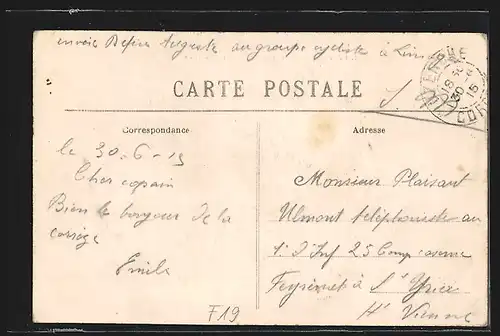 envoie Auguste au groupe cycliste à
CARTE POSTALE
Correspondance
Adresse
le 30-6-15
Cher copain
Bien le bonjour de la
corrèze
Emile
Monsieur Plaisant
Ulmont téléphoniste au
d'Inf 25 Comp caserne
à St Yrieix
Hte Vienne
F19
30 - 6
15